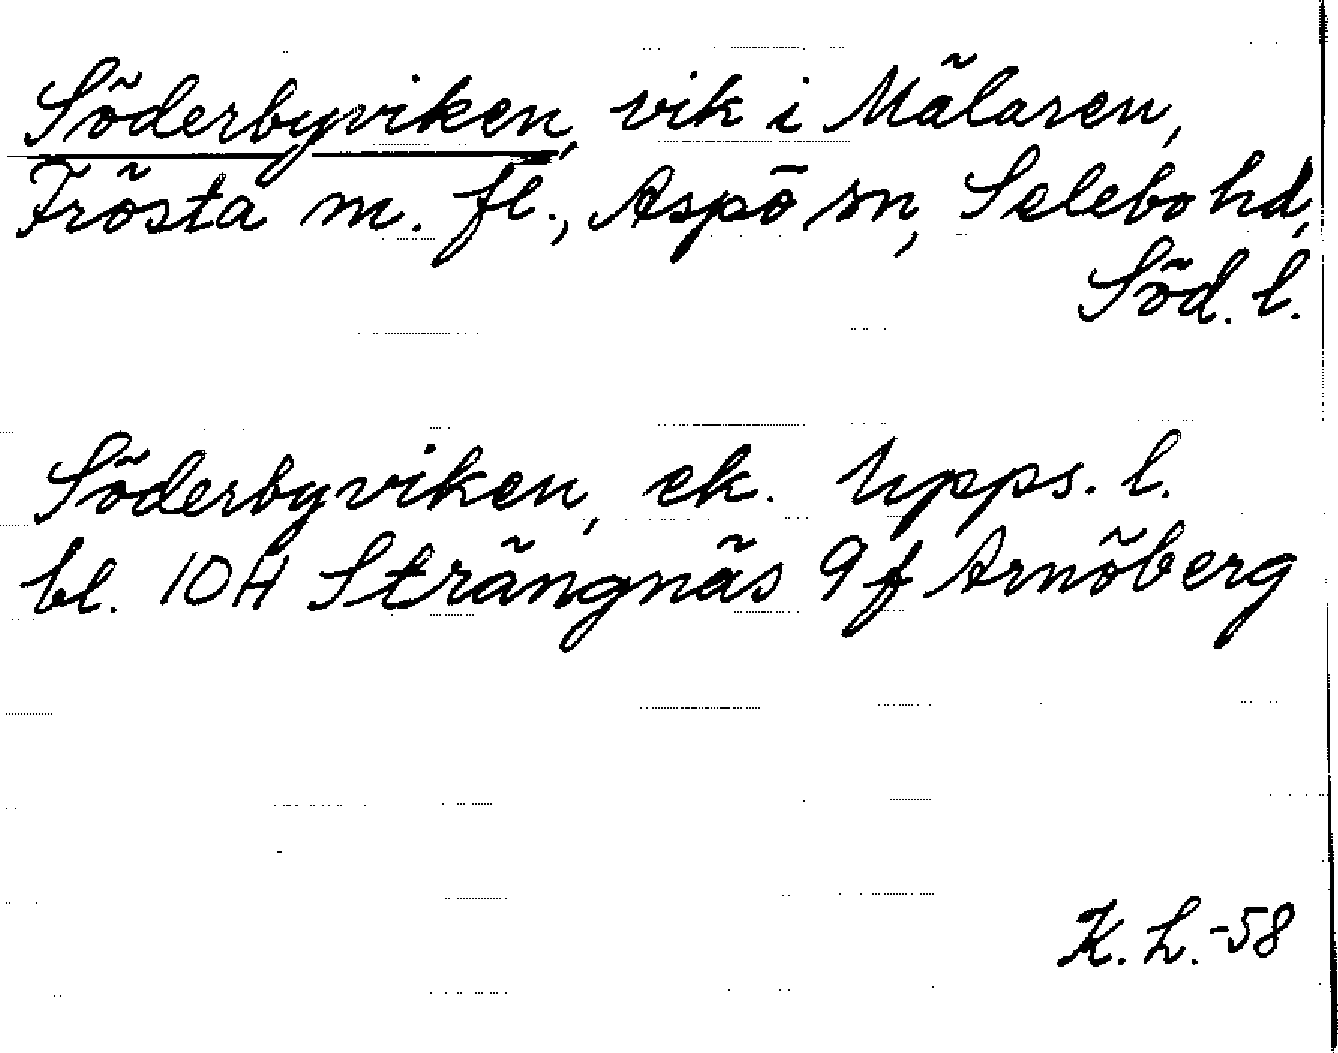 Söderbyviken, vik i Mälaren,
Frösta m. fl., Aspö sn, Selebo hd,
Söd. l.
Söderbyviken, ek. Upps. l.
bl. 10H Strängnäs 9f Arnöberg
K. L.-58